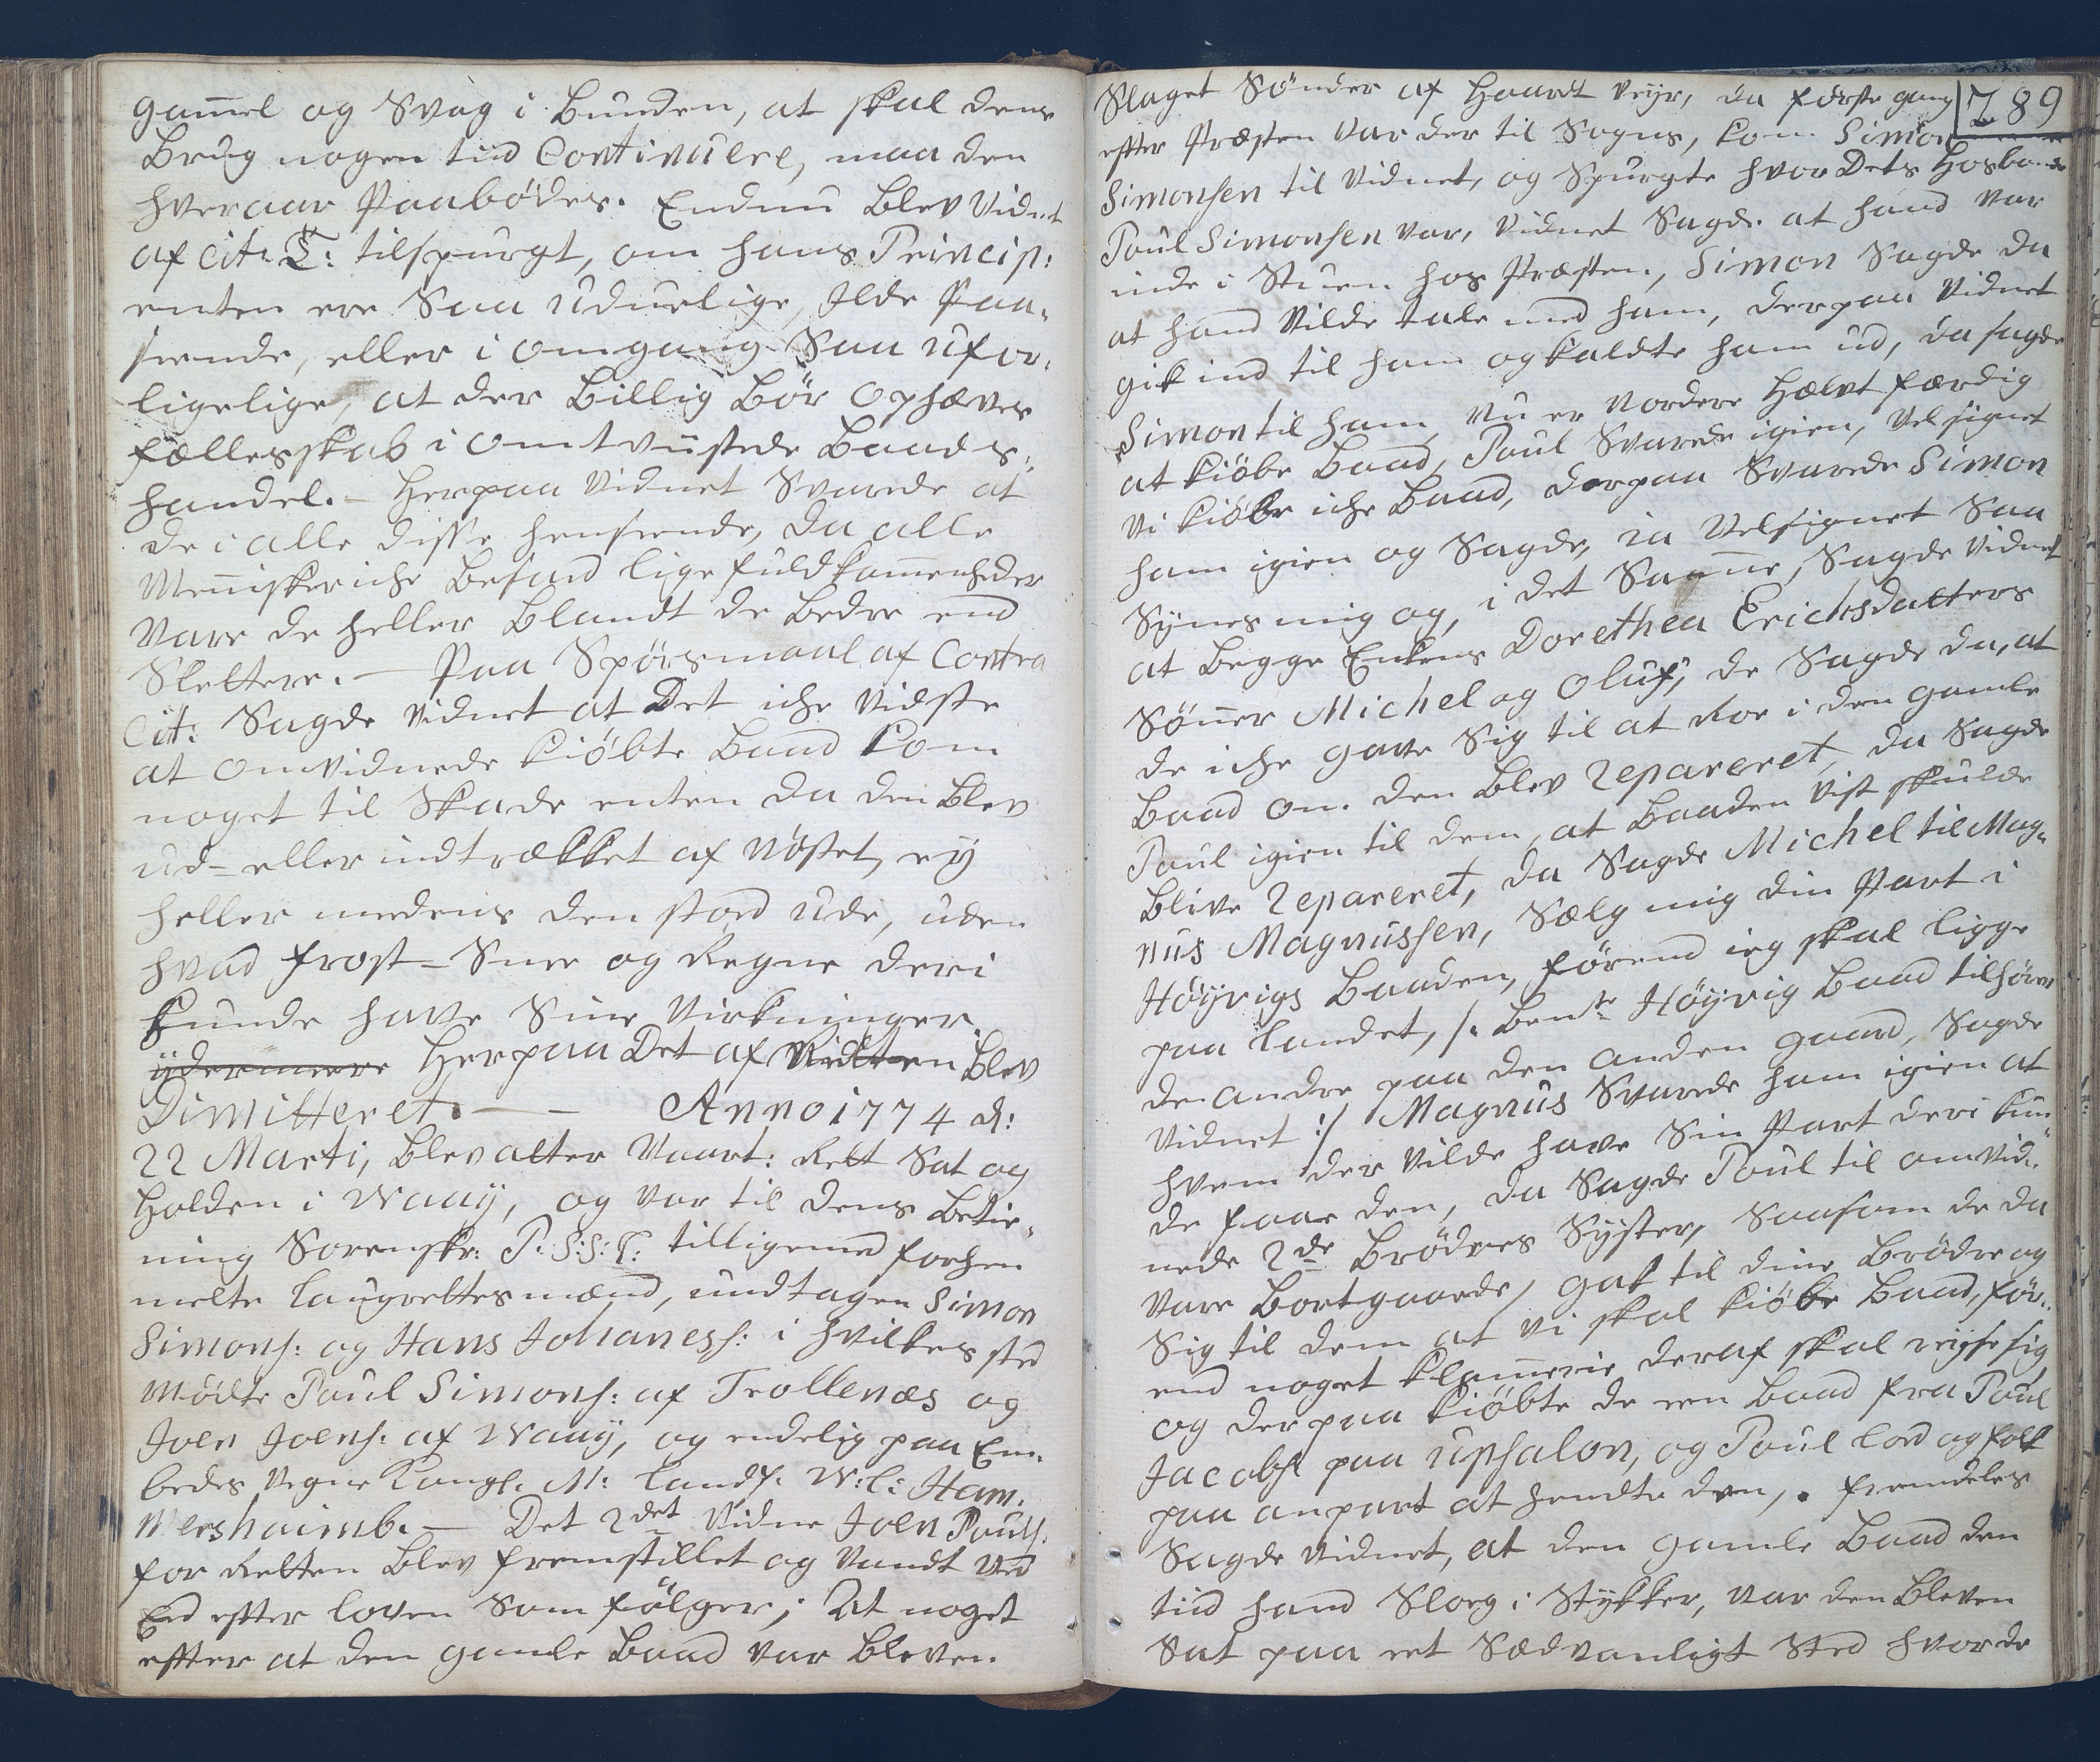 gam̄el og Svag i Bunden, at skal dens
Brug nogen tiid Continuere, maa den
hver aar Paabödes. Endnu blev Vidnet
af Cit: T: tilspurgt, om hans Princip:
enten ere Saa Uduelige, Ilde Paa,
seende, eller i omgang Saa ufor,
ligelige, at der Billig Bör Ophæves
fællesskab i omtviistede Baads,
handel. – Herpaa Vidnet Svarede at
de i alle disse henseende, da alle
Meñisker iche Besad lige fuldkom̄enheder
Vare de heller blandt de Bedre end
Slettere. – Paa Spörsmaal af Contra
Cit: Sagde Vidnet at Det iche Vidste
at omvidnede kiöbte Baad kom
noget til Skade enten da den blev
ud- eller indtrækket af Nöstet, ey
heller medens den stod ude, uden
hvad frost- Snee og Regne deri
kunde have Sine Virkninger.
ydermeere Herpaa Det af Retten Blev
Dimitteret. — — Anno 1774 d:
22 Marti, blev atter Vaart: Rett Sat og
Holden i Waaÿ, og var til dens Betie,
ning Sorenskr: P: S: S: T: tilligemed forhen
melte Laugrettesmænd, undtagen Simon
Simons: og Hans Johaness: i hvilkes sted
Mödte Paul Simons: af Trollenæs og
Joen Joens: af Waaÿ, og endelig paa Em,
beds Vegne Kongl. M: Landf. W: C: Ham,
mershaimb. – Det 2det Vidne Joen Pouls:
for Retten blev fremstillet og Vandt Ved
Eed efter loven Som fölger; At noget
efter at den gamle Baad var bleven
789
Slaget Sönder af Haardt Veyr, da förste gang
efter Præsten Var der til Sogns, kom Simon
Simonsen til Vidnet, og Spurgte hvor Dets Hosbonde
Poul Simonsen var, Vidnet Sagde at hand var
inde i Stuen hos Præsten, Simon Sagde da
at hand Vilde tale med ham, derpaa Vidnet
gik ind til ham og kaldte ham ud, da sagde
Simon til ham, Nu er Nordere Hælvt færdig
at kiöbe Baad, Poul Svarede igien, Velsignet
Vi kiöbe iche Baad, derpaa Svarede Simon
ham igien og Sagde, ia Velsignet Saa
Synes mig og, i det Sam̄e, Sagde Vidnet
at begge Enkens Dorethea Erichsdatters
Söñer Michel og Oluf, de Sagde da, at
de iche gave Sig til at Roe i den gamle
Baad om den blev Repareret, da Sagde
Poul igien til dem, at Baaden Vist skulde
blive Repareret, da Sagde Michel til Mag,
nus Magnussen, Sælg mig din Part i
Höyvigs Baaden, förend ieg skal ligge
paa Landet, /: Ben.te Höyvig Baad tilhörer
de andre paa den anden gaard, Sagde
Vidnet :/ Magnus Svarede ham igien at
hvem der Vilde have Sin Part deri kun,
de faae den, da Sagde Poul til omvid,
nede 2de Brödres Syster, Saasom de da
Vare Bortgaaede, gak til dine Brödre og
Sig til dem at vi skal kiöbe Baad, för,
end noget klam̄erie deraf skal reyse sig,
og derpaa kiöbte de een baad fra Poul
Jacobs: paa Upsalon, og Poul lod og folk
paa anpart at hendte den, . fremdeles
Sagde Vidnet, at den gamle Baad den
tiid hand Sloeg i Stykker, var den bleven
Sat paa eet Sædvanligt Sted hvor de